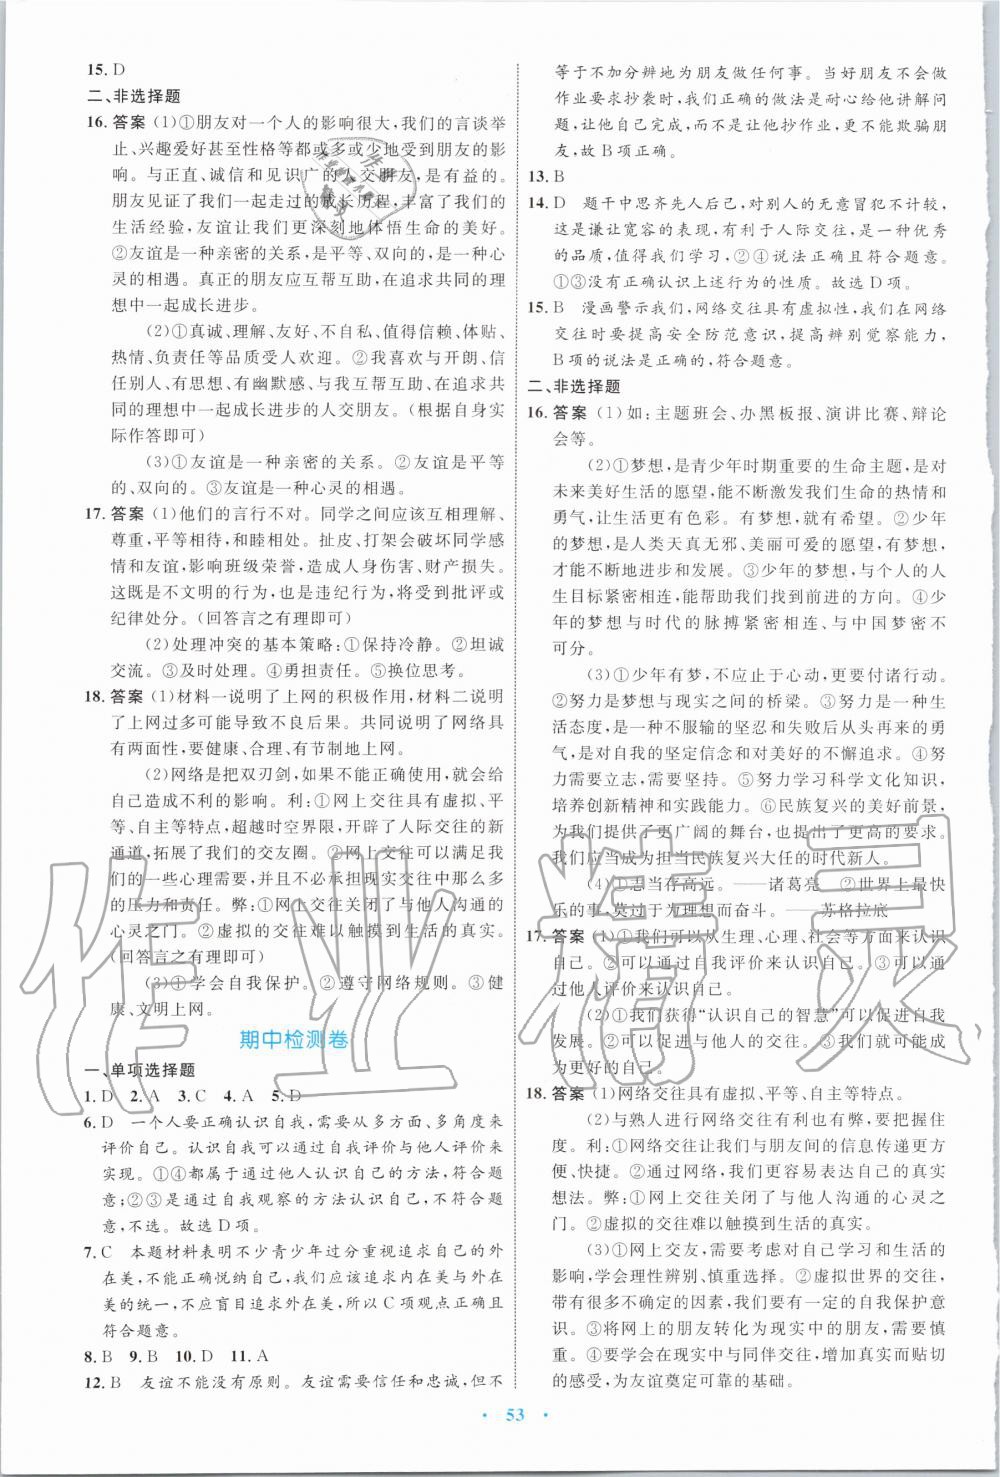 15. D
二、非选择题
16. 答案 (1)①朋友对一个人的影响很大,我们的言谈举
止、兴趣爱好甚至性格等都或多或少地受到朋友的影
响。与正直、诚信和见识广的人交朋友,是有益的。
朋友见证了我们一起走过的成长历程,丰富了我们的
生活经验,友谊让我们更深刻地体悟生命的美好。
②友谊是一种亲密的关系,是平等、双向的,是一种心
灵的相遇。真正的朋友应互帮互助,在追求共同的理
想中一起成长进步。
(2)①真诚、理解、友好、不自私、值得信赖、体贴、
热情、负责任等品质受人欢迎。②我喜欢与开朗、信
任别人、有思想、有幽默感、与我互帮互助、在追求共
同的理想中一起成长进步的人交朋友。(根据自身实
际作答即可)
(3)①友谊是一种亲密的关系。②友谊是平等
的、双向的。③友谊是一种心灵的相遇。
17. 答案 (1)他们的言行不对。同学之间应该互相理解、
尊重,平等相待,和睦相处。扯皮、打架会破坏同学感
情和友谊,影响班级荣誉,造成人身伤害、财产损失。
这既是不文明的行为,也是违纪行为,将受到批评或
纪律处分。(回答言之有理即可)
(2)处理冲突的基本策略:①保持冷静。②坦诚
交流。③及时处理。④勇担责任。⑤换位思考。
18. 答案 (1)材料一说明了上网的积极作用,材料二说明
了上网过多可能导致不良后果。共同说明了网络具
有两面性,要健康、合理、有节制地上网。
(2)网络是把双刃剑,如果不能正确使用,就会给
自己造成不利的影响。利:①网上交往具有虚拟、平
等、自主等特点,超越时空界限,开辟了人际交往的新
通道,拓展了我们的交友圈。②网上交往可以满足我
们的一些心理需要,并且不必承担现实交往中那么多
的压力和责任。弊:①网上交往关闭了与他人沟通的
心灵之门。②虚拟的交往难以触摸到生活的真实。
(回答言之有理即可)
(3)①学会自我保护。②遵守网络规则。③健
康、文明上网。
期中检测卷
一、单项选择题
1. D 2. A 3. C 4. A 5. D
6. D 一个人要正确认识自我,需要从多方面、多角度来
评价自己。认识自我可以通过自我评价与他人评价来
实现。①④都属于通过他人认识自己的方法,符合题
意;②③是通过自我观察的方法认识自己,不符合题
意,不选。故选D项。
7. C 本题材料表明不少青少年过分重视追求自己的外
在美,不能正确悦纳自己,我们应该追求内在美与外在
美的统一,不应盲目追求外在美,所以C项观点正确且
符合题意。
8. B 9. B 10. D 11. A
12. B 友谊不能没有原则。友谊需要信任和忠诚,但不
等于不加分辨地为朋友做任何事。当好朋友不会做
作业要求抄袭时,我们正确的做法是耐心给他讲解问
题,让他自己完成,而不是让他抄作业,更不能欺骗朋
友,故B项正确。
13. B
14. D 题干中思齐先人后己,对别人的无意冒犯不计较,
这是谦让宽容的表现,有利于人际交往,是一种优秀
的品质,值得我们学习,②④说法正确且符合题意。
①③没有正确认识上述行为的性质。故选D项。
15. B 漫画警示我们,网络交往具有虚拟性,我们在网络
交往时要提高安全防范意识,提高辨别觉察能力,
B项的说法是正确的,符合题意。
二、非选择题
16. 答案 (1)如:主题班会、办黑板报、演讲比赛、辩论
会等。
(2)①梦想,是青少年时期重要的生命主题,是对
未来美好生活的愿望,能不断激发我们生命的热情和
勇气,让生活更有色彩。有梦想,就有希望。②少年
的梦想,是人类天真无邪、美丽可爱的愿望,有梦想,
才能不断地进步和发展。③少年的梦想,与个人的人
生目标紧密相连,能帮助我们找到前进的方向。④少
年的梦想与时代的脉搏紧密相连、与中国梦密不
可分。
(3)①少年有梦,不应止于心动,更要付诸行动。
②努力是梦想与现实之间的桥梁。③努力,是一种生
活态度,是一种不服输的坚忍和失败后从头再来的勇
气,是对自我的坚定信念和对美好的不懈追求。④努
力需要立志,需要坚持。⑤努力学习科学文化知识,
培养创新精神和实践能力。⑥民族复兴的美好前景,
为我们提供了更广阔的舞台,也提出了更高的要求。
我们应当成为担当民族复兴大任的时代新人。
(4)①志当存高远。——诸葛亮 ②世界上最快
乐的事,莫过于为理想而奋斗。——苏格拉底
17. 答案 (1)①我们可以从生理、心理、社会等方面来认识
自己。②可以通过自我评价来认识自己。③可以通
过他人评价来认识自己。
(2)①我们获得“认识自己的智慧”可以促进自我
发展。②可以促进与他人的交往。③可以成为独特
的、更好的自己。
18. 答案 (1)网络交往具有虚拟、平等、自主等特点。
(2)与熟人进行网络交往有利也有弊,要把握住
度。利:①网络交往让我们与朋友间的信息传递更方
便、快捷。②通过网络,我们更容易表达自己的真实
想法。弊:①网上交往关闭了与他人沟通的心灵之
门。②虚拟的交往难以触摸到生活的真实。
(3)①网上交友,需要考虑对自己学习和生活的
影响,学会理性辨别、慎重选择。②虚拟世界的交往,
带有很多不确定的因素,我们要有一定的自我保护意
识。③将网上的朋友转化为现实中的朋友,需要慎
重。④要学会在现实中与同伴交往,体会真实而贴切
的感受,为友谊奠定可靠的基础。
· 53 ·
作业精灵